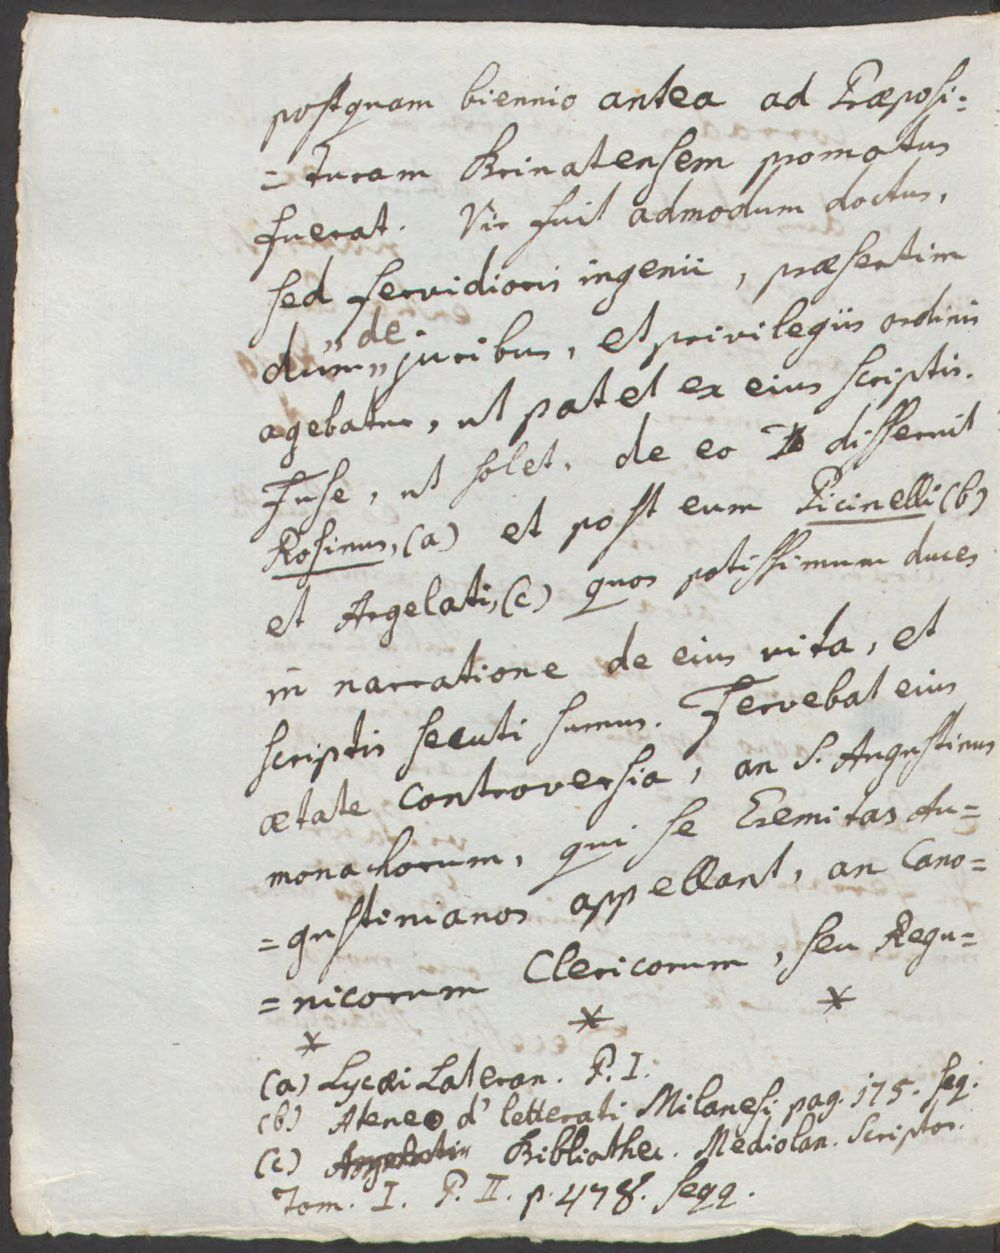 postquam biennio antea ad Præposi=
=turam Brinatensem promotus
fuerat. Vir fuit admodum doctus,
sed fervidioris ingenii, præsertim
„de„
dum„juribus, et privilegiis ordinis
agebatur, ut patet ex eius scriptis.
Fuse, ut solet, de eo disseruit
Rosinus, (a) et post eum Picinelli (b)
et Argelati, (c) quos potissimum duces
in narratione de eius vita, et
scriptis secuti sumus. Fervebat eius
ætate controversia, an S. Augustinus
monachorum, qui se Eremitas Au=
=gustinianos appellant, an Cano=
=nicorum Clericorum, seu Regu=
* * *
(a) Lycæi Lateran. P. I.
(b) Ateneo d' letterati Milanesi pag. 175. seq.
(c) Bibliothec. Mediolan. Scriptor.
Tom. I. P. II. p. 478. seqq.